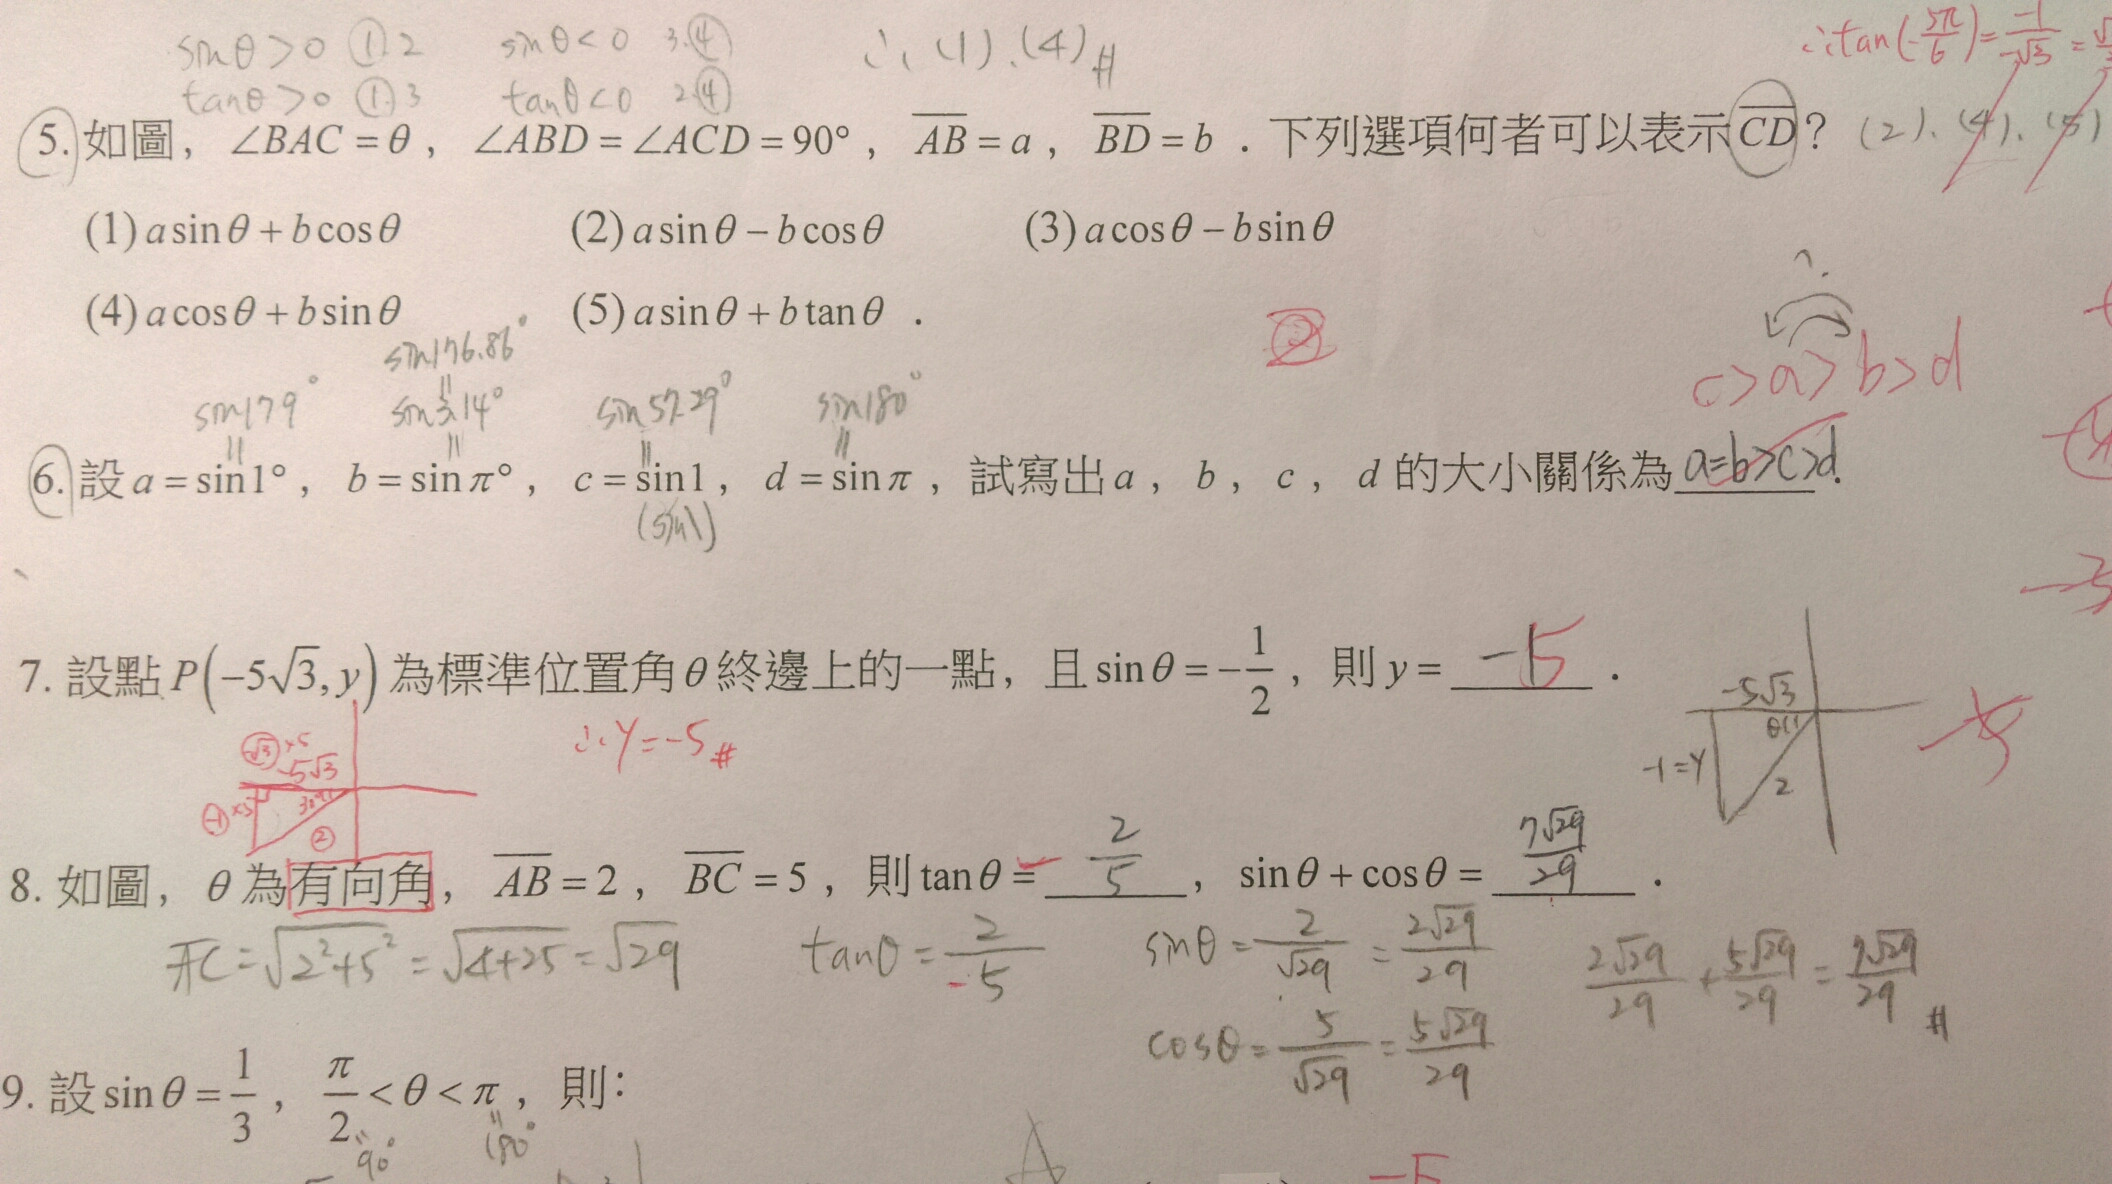 sinθ>0 ①.2 sinθ<0 3.④ ∴(1).(4)#
tanθ>0 ①.3 tanθ<0 2.④
∴tan(-5π/6)=-1/-√3=
5.如圖，∠BAC=θ，∠ABD=∠ACD=90°，AB=a，BD=b．下列選項何者可以表示CD? (2).(4).(5)
(1)asinθ+bcosθ (2)asinθ-bcosθ (3)acosθ-bsinθ
(4)acosθ+bsinθ (5)asinθ+btanθ．
②
c>a>b>d
sin176.86°
sin179° sin3.14° sin57.29° sin180°
6.設a=sin1°，b=sinπ°，c=sin1，d=sinπ，試寫出a，b，c，d的大小關係為a=b>c>d.
(sin1)
7.設點P(-5√3,y)為標準位置角θ終邊上的一點，且sinθ=-1/2，則y=-5．
∴y=-5#
-√3 ×5
-5√3
-1 ×5 30° ②
-5√3
θ
-1=y 2
8.如圖，θ為有向角，AB=2，BC=5，則tanθ=-2/5，sinθ+cosθ=7√29/29．
AC=√2²+5²=√4+25=√29 tanθ=2/-5 sinθ=2/√29=2√29/29 2√29/29+5√29/29=7√29/29#
cosθ=5/√29=5√29/29
9.設sinθ=1/3，π/2<θ<π，則：
90° 180°